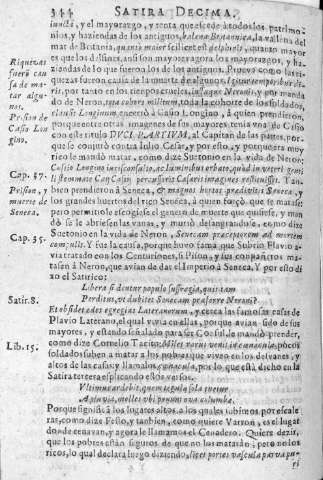 344 SATIRA DECIMA.
iuncta, y el mayorazgo, y renta que excede à todos los patrimo-
nios, y haziendas de los antiguos, balena Britannica, la vallena del
mar de Britania, quanto maior est delphinis, quanto mayor
es que los delfines, ansi son mayores agora los mayorazgos, y ha-
ziendas de lo que fueron los de los antiguos. Prueva como las ri-
quezas fueron causa de la muerte de algunos, Temporibus
por tanto en los tiempos crueles, iussuque Neronis, y por manda-
do de Neron, tota cohors militum, toda la cohorte de los soldados,
clausit Longinum, cercò à Casio Longino, à quien prendieron,
porque entre otras imagines de sus mayores tenia una de Casio
con este titulo DUCI PARTIUM, al Capitan de las partes, por-
que se conjurò contra Iulio Cesar, y por esto, y porque era muy
rico le mandò matar, como dize Suetonio en la vida de Neron:
Cassio Longino
Y tan
bien prendieron à Seneca, & magnos hortos praedivitis Seneca, y
los grandes huertos del rico Seneca, à quien forçò que se matase:
pero permitiole escogiese el genero de muerte que quisiese, y man-
dò se le abriesen las venas, y muriò desangrandose, como dize
Suetonio en la vida de Neron, Senecam praeceptorem ad mortem
compulit. Y fue la causa, porque huvo fama que Subrio Flavio a-
via tratado con los Centuriones, si Pison, y sus compañeros ma-
tasan à Neron, que avian de dar el Imperio à Seneca. Y por esto di-
xo el Satirico:
Libera si dentur populo suffragia, quis tam
Perditus, ut dubitet Senecam praeferre Neroni?
Et obsidet aedes egregias Lateranorum, y cerca las famosas casas de
Plavio Laterano, el qual vivia en ellas, porque avian sido de sus
mayores, y estando señalado para ser Consul, le mandò prender,
como dize Cornelio Tacito, Miles rarus venit in coenacula, pocos
soldados suben a matar a los pobres que viven en los desvanes, y
altos de las casas, y llamalos coenacula, por lo que està dicho en la
Satira tercera explicando estos versos:
Ultimus ardebit, quem tegula sola tuetur
A pluvia, molles ubi reddunt ova columbae.
Porque significa los lugares altos, a los quales subimos por escale-
ras, como dize Festo, y tanbien, como quiere Varron, es el lugar
donde cenavan, y agora le llamamos el Cenadero. Quiere dezir,
que los pobres estàn seguros de que no los mataràn; pero no los
ricos, lo qual declara luego diziendo, licet portes pauca vascula pu-
ri
Riquezas
fueron cau-
sa de ma-
tar algu-
nos.
Prision de
Casio Lon
gino.
Cap. 37.
Prision, y
muerte de
Seneca.
Cap. 35.
Satir. 8.
Lib. 15.